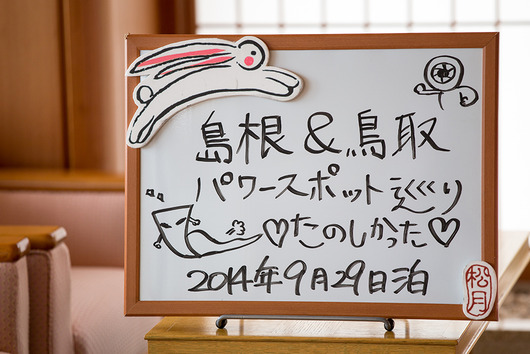 島根&鳥取
パワースポット巡り
♡たのしかった♡
2014年9月29日泊
松月